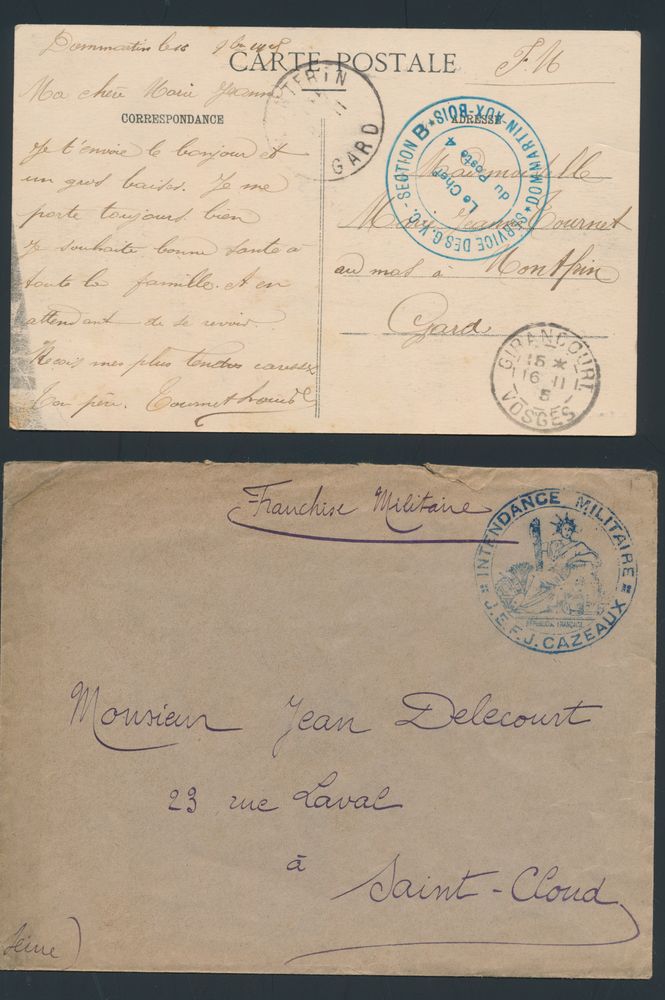 CARTE POSTALE
F. M
Dommartin le 
Ma chère Marie Jeanne
CORRESPONDANCE
Je t'envoie le bonjour et
un gros baiser. Je me
porte toujours bien
Je souhaite bonne santé a
toute la famille. et en
attendant de se revoir.
Recois mes plus tendres caresses
Ton père. Tournet Louis
GARD
11
ADRESSE
SERVICE DES G.V.C. - SECTION B
DOMMARTIN-AUX-BOIS
Le Chef
du Poste 4
Mademoiselle
Marie Jeanne Tournet
au mas à Montfrin
Gard
GIRANCOURT
15 *
16 11
5
VOSGES
Franchise Militaire
INTENDANCE MILITAIRE
REPUBLIQUE FRANÇAISE
J.E.F.J. CAZEAUX
Monsieur Jean Delecourt
23 rue Laval
à
Saint-Cloud
Seine)